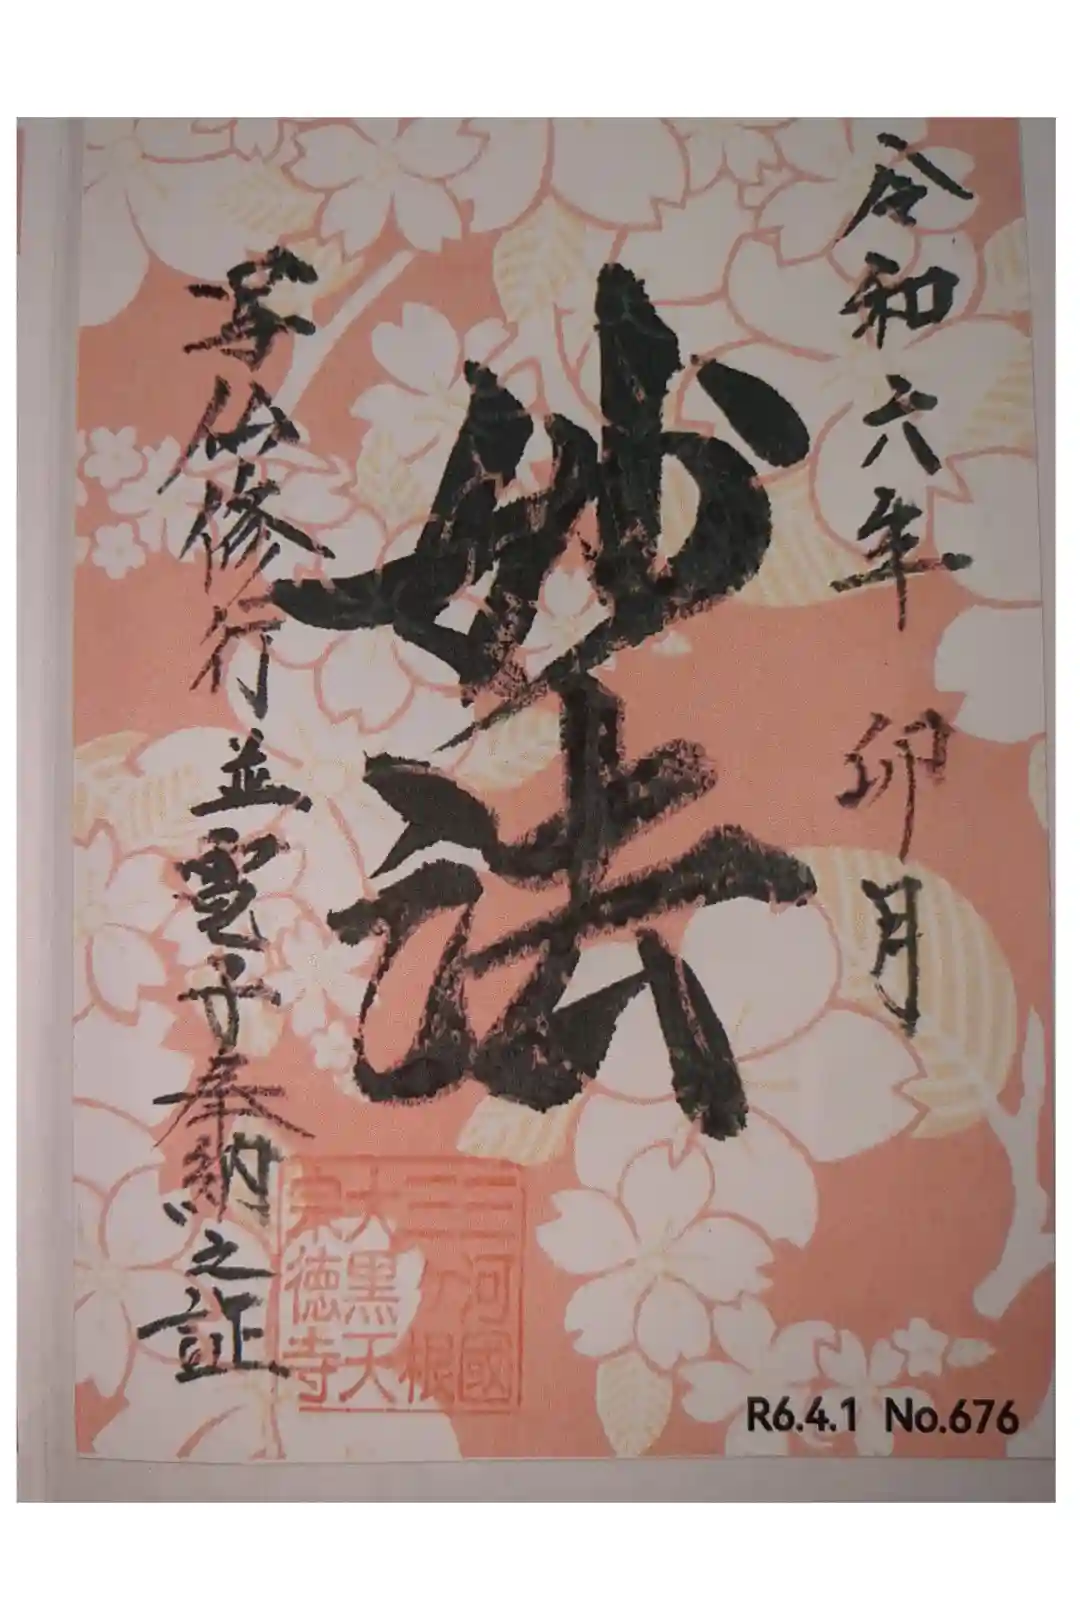 令和六年 卯月
妙法
写仏修行並電子奉納之証
三河國
三ヶ根
大黒天
宗徳寺
R6.4.1 No.676